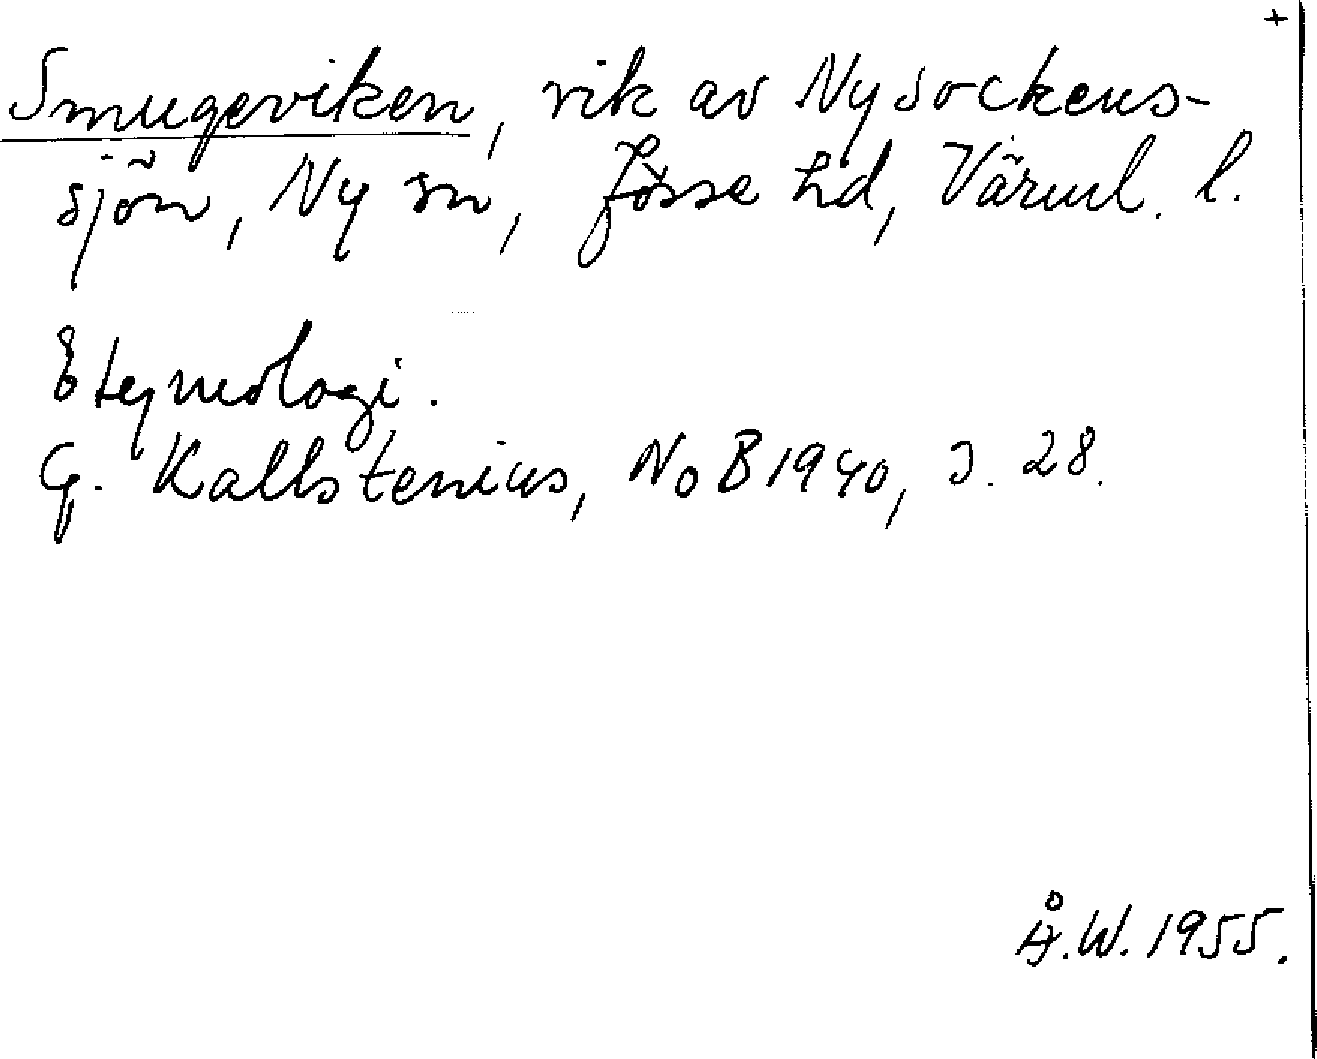 +
Smugeviken, vik av Nysockens-
sjön, Ny sn, Jösse hd, Värml. l.
Etymologi.
G. Kallstenius, NoB 1940, s. 28.
Å.W. 1955.